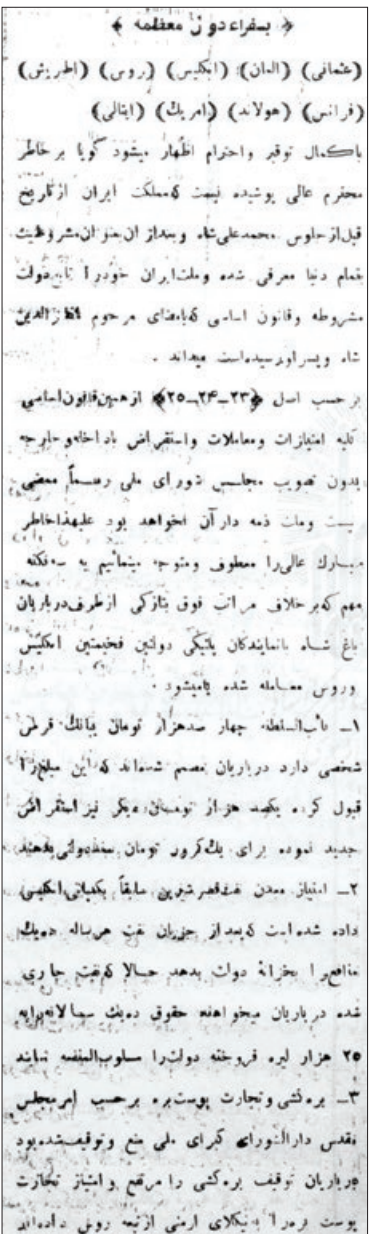 ﴿ بسفراء دول معظمه ﴾
(عثمانی) (المان) (انگلیس) (روس) (اطریش)
(فرانس) (هولاند) (امریك) (ایتالی)
باکمال توقیر واحترام اظهار میشود گویا بر خاطر
محترم عالی پوشیده نیست که مملکت ایران از تاریخ
قبل از جلوس محمد علی شاه و بعد از ان بعنوان مشروطیت
بتمام دنیا معرفی شده وملت ایران خودرا تابع دولت
مشروطه وقانون اساسی که بامضای مرحوم مظفرالدین
شاه وپسر او رسیده است میداند .
بر حسب اصل ﴿۲۳ــ۲۴ــ۲۵﴾ از همین قانون اساسی
کلیه امتیازات ومعاملات واستقراض یا داخله و خارجه
بدون تصویب مجلس شورای ملی رسماً ممضی
نیست وملت ذمه دار آن نخواهد بود علیهذا خاطر
مبارك عالی را معطوف ومتوجه مینمائیم به سه نکته
مهم که بر خلاف مراتب فوق بتازگی از طرف درباریان
باغ شاه با نمایندگان پلتیکی دولتین فخیمتین انگلیس
وروس معامله شده یا میشود .
۱ــ نائب السلطنه چهار صد هزار تومان ببانك قرض
شخصی دارد درباریان مصمم شده اند که این مبلغ را
قبول کرده یکصد هزار تومان دیگر نیز استقراض
جدید نموده برای یك کرور تومان سند دولتی بدهند
۲ــ امتیاز معدن نفت قصر شیرین سابقاً بکمپانی انگلیسی
داده شده است که بعد از جریان نفت هر ساله ده یك
منافع را بخزانهٔ دولت بدهد حالا که نفت جاری
شده درباریان میخواهند حقوق ده یك سالانه را به
۲۵ هزار لیره فروخته دولت را مسلوب المنفعه نمایند
۳ــ بره کشی و تجارت پوست بره بر حسب امر مجلس
مقدس دارالشورای کبرای ملی منع وتوقیف شده بود
درباریان توقیف بره کشی را مرتفع و امتیاز تجارت
پوست بره را به نیکلای ارمنی از تبعه روس داده اند